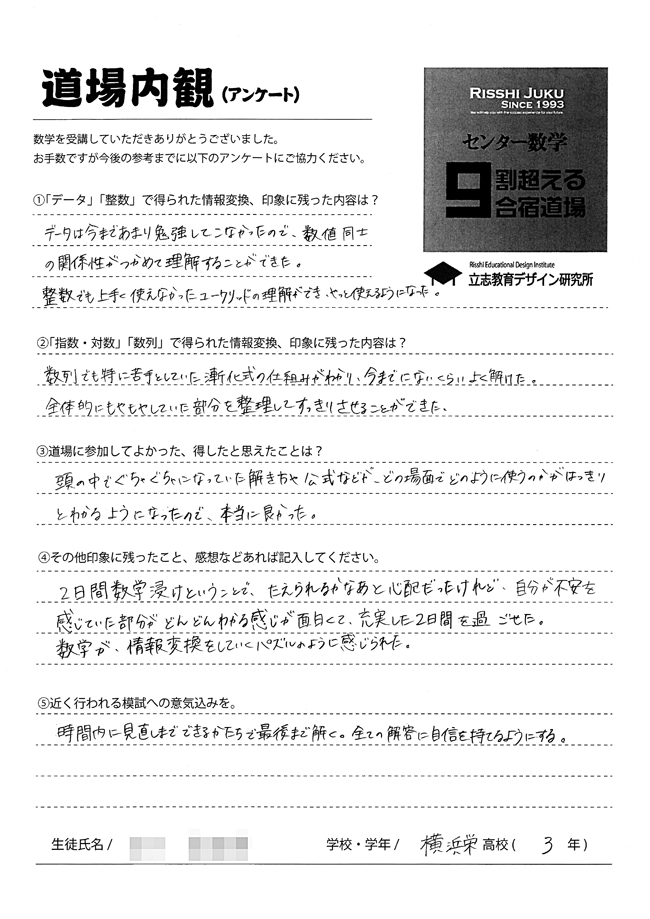 道場内観(アンケート)
RISSHI JUKU
SINCE 1993
センター数学
9割超える
合宿道場
Risshi Educational Design Institute
立志教育デザイン研究所
数学を受講していただきありがとうございました。
お手数ですが今後の参考までに以下のアンケートにご協力ください。
①「データ」「整数」で得られた情報変換、印象に残った内容は?
データは今まであまり勉強してこなかったので、数値同士
の関係性がつかめて理解することができた。
整数でも上手く使えなかったユークリッドの理解ができ、やっと使えるようになった。
②「指数・対数」「数列」で得られた情報変換、印象に残った内容は?
数列でも特に苦手としていた漸化式の仕組みがわかり、今までにないくらいよく解けた。
全体的にもやもやしていた部分を整理してすっきりさせることができた、
③道場に参加してよかった、得したと思えたことは?
頭の中でぐちゃぐちゃになっていた解き方や公式などが、どの場面でどのように使うのかがはっきり
とわかるようになったので、本当に良かった。
④その他印象に残ったこと、感想などあれば記入してください。
2日間数学浸けということで、たえられるかなあと心配だったけれど、自分が不安を
感じていた部分がどんどんわかる感じが面白くて、充実した2日間を過ごせた。
数学が、情報変換をしていくパズルのように感じられた。
⑤近く行われる模試への意気込みを。
時間内に見直しまでできるかたちで最後まで解く。全ての解答に自信を持てるようにする。
生徒氏名 / 学校・学年 / 横浜栄高校( 3 年)